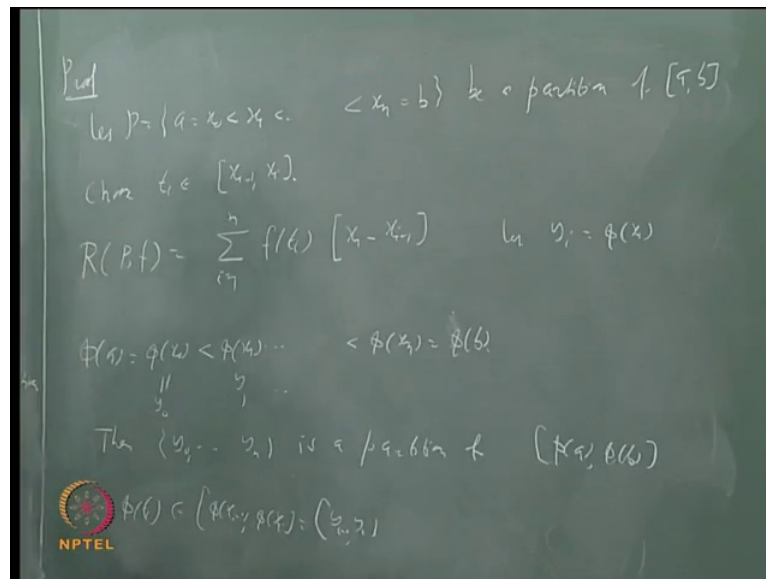 Proof
Let P = { a = x₀ < x₁ < . < xₙ = b } be a partition of [a, b]
Choose tᵢ ∈ [xᵢ₋₁, xᵢ].
R(P, f) = ∑ᵢ₌₁ⁿ f(tᵢ) [xᵢ - xᵢ₋₁] Let yᵢ = φ(xᵢ)
φ(a) = φ(x₀) < φ(x₁) ... < φ(xₙ) = φ(b).
|| y₁ ..
y₀
Then {y₀, .. yₙ} is a partition of [φ(a), φ(b)]
φ(tᵢ) ∈ [φ(xᵢ₋₁), φ(xᵢ)] = [yᵢ₋₁, yᵢ]
NPTEL